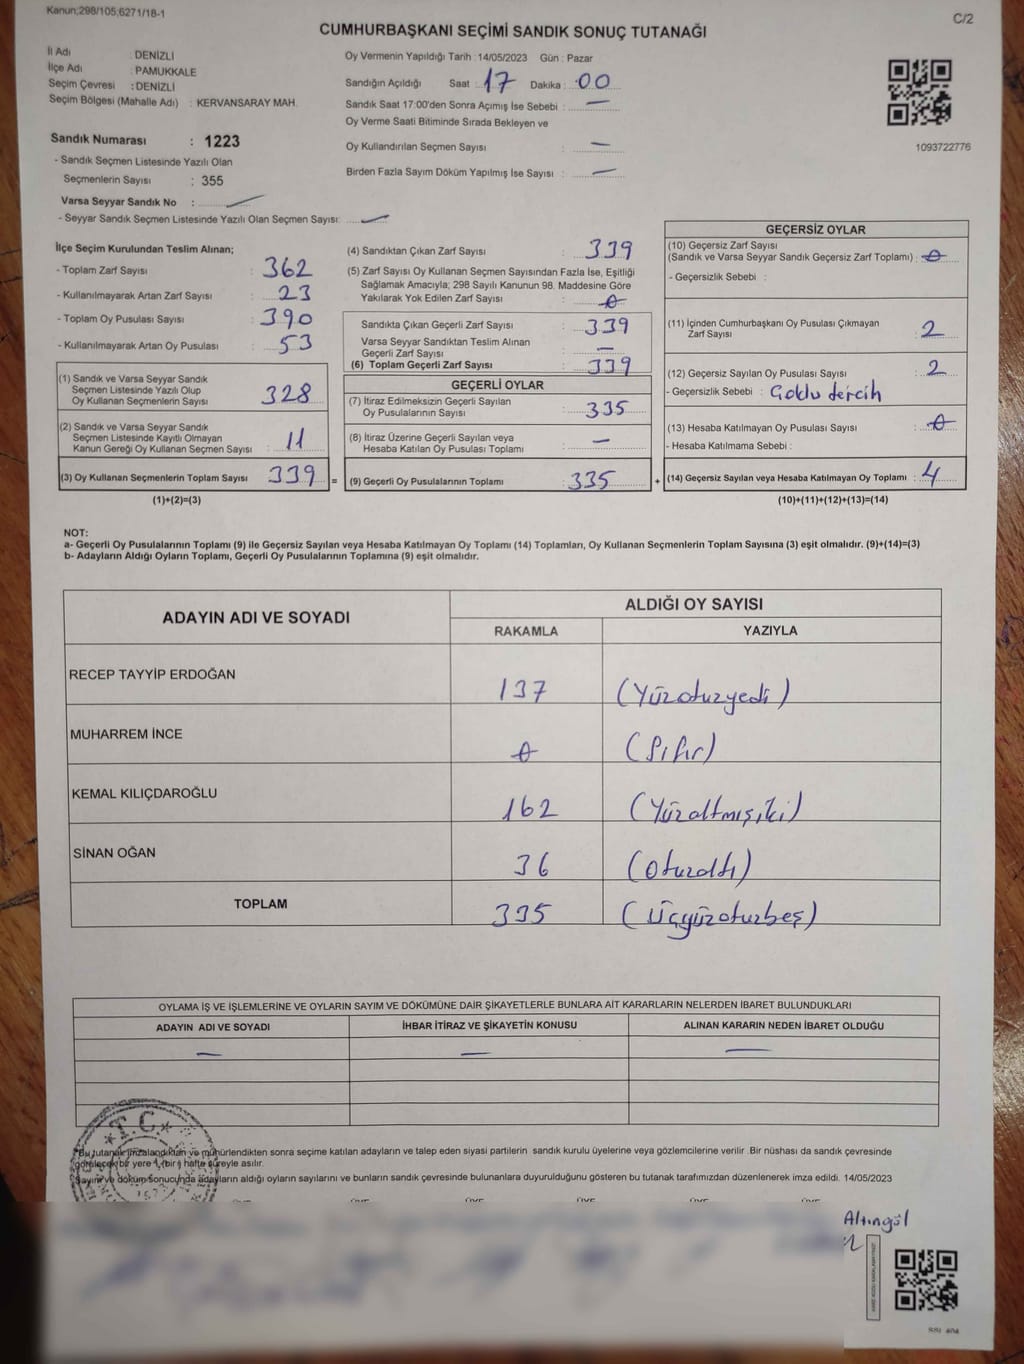 Kanun;298/105;6271/18-1
C/2
CUMHURBAŞKANI SEÇİMİ SANDIK SONUÇ TUTANAĞI
İl Adı : DENİZLİ
İlçe Adı : PAMUKKALE
Seçim Çevresi : DENİZLİ
Seçim Bölgesi (Mahalle Adı) : KERVANSARAY MAH.
Sandık Numarası : 1223
- Sandık Seçmen Listesinde Yazılı Olan
Seçmenlerin Sayısı : 355
Varsa Seyyar Sandık No : —
- Seyyar Sandık Seçmen Listesinde Yazılı Olan Seçmen Sayısı: —
Oy Vermenin Yapıldığı Tarih : 14/05/2023 Gün : Pazar
Sandığın Açıldığı Saat : 17 Dakika : 00
Sandık Saat 17:00'den Sonra Açımış İse Sebebi : —
Oy Verme Saati Bitiminde Sırada Bekleyen ve
Oy Kullandırılan Seçmen Sayısı : —
Birden Fazla Sayım Döküm Yapılmış İse Sayısı : —
1093722776
İlçe Seçim Kurulundan Teslim Alınan;
- Toplam Zarf Sayısı : 362
- Kullanılmayarak Artan Zarf Sayısı : 23
- Toplam Oy Pusulası Sayısı : 390
- Kullanılmayarak Artan Oy Pusulası : 53
(1) Sandık ve Varsa Seyyar Sandık
Seçmen Listesinde Yazılı Olup
Oy Kullanan Seçmenlerin Sayısı 328
(2) Sandık ve Varsa Seyyar Sandık
Seçmen Listesinde Kayıtlı Olmayan
Kanun Gereği Oy Kullanan Seçmen Sayısı : 11
(3) Oy Kullanan Seçmenlerin Toplam Sayısı 339 =
(1)+(2)=(3)
(4) Sandıktan Çıkan Zarf Sayısı : 339
(5) Zarf Sayısı Oy Kullanan Seçmen Sayısından Fazla İse, Eşitliği
Sağlamak Amacıyla; 298 Sayılı Kanunun 98. Maddesine Göre
Yakılarak Yok Edilen Zarf Sayısı : 0
Sandıkta Çıkan Geçerli Zarf Sayısı : 339
Varsa Seyyar Sandıktan Teslim Alınan
Geçerli Zarf Sayısı : —
(6) Toplam Geçerli Zarf Sayısı : 339
GEÇERLİ OYLAR
(7) İtiraz Edilmeksizin Geçerli Sayılan
Oy Pusulalarının Sayısı : 335
(8) İtiraz Üzerine Geçerli Sayılan veya
Hesaba Katılan Oy Pusulası Toplamı : —
(9) Geçerli Oy Pusulalarının Toplamı : 335 +
GEÇERSİZ OYLAR
(10) Geçersiz Zarf Sayısı
(Sandık ve Varsa Seyyar Sandık Geçersiz Zarf Toplamı) : 0
- Geçersizlik Sebebi :
(11) İçinden Cumhurbaşkanı Oy Pusulası Çıkmayan
Zarf Sayısı : 2
(12) Geçersiz Sayılan Oy Pusulası Sayısı : 2
- Geçersizlik Sebebi : Çoklu tercih
(13) Hesaba Katılmayan Oy Pusulası Sayısı : 0
- Hesaba Katılmama Sebebi :
(14) Geçersiz Sayılan veya Hesaba Katılmayan Oy Toplamı : 4
(10)+(11)+(12)+(13)=(14)
NOT:
a- Geçerli Oy Pusulalarının Toplamı (9) ile Geçersiz Sayılan veya Hesaba Katılmayan Oy Toplamı (14) Toplamları, Oy Kullanan Seçmenlerin Toplam Sayısına (3) eşit olmalıdır. (9)+(14)=(3)
b- Adayların Aldığı Oyların Toplamı, Geçerli Oy Pusulalarının Toplamına (9) eşit olmalıdır.
ADAYIN ADI VE SOYADI
ALDIĞI OY SAYISI
RAKAMLA YAZIYLA
RECEP TAYYİP ERDOĞAN 137 (Yüzotuzyedi)
MUHARREM İNCE 0 (Sıfır)
KEMAL KILIÇDAROĞLU 162 (Yüzaltmışiki)
SİNAN OĞAN 36 (Otuzaltı)
TOPLAM 335 (Üçyüzotuzbeş)
OYLAMA İŞ VE İŞLEMLERİNE VE OYLARIN SAYIM VE DÖKÜMÜNE DAİR ŞİKAYETLERLE BUNLARA AİT KARARLARIN NELERDEN İBARET BULUNDUKLARI
ADAYIN ADI VE SOYADI İHBAR İTİRAZ VE ŞİKAYETİN KONUSU ALINAN KARARIN NEDEN İBARET OLDUĞU
— — —
T.C.
*Bu tutanak imzalandıktan ve mühürlendikten sonra seçime katılan adayların ve talep eden siyasi partilerin sandık kurulu üyelerine veya gözlemcilerine verilir. Bir nüshası da sandık çevresinde
görülecek bir yere 1 (bir) hafta süreyle asılır.
*Sayım ve döküm sonucunda adayların aldığı oyların sayılarını ve bunların sandık çevresinde bulunanlara duyurulduğunu gösteren bu tutanak tarafımızdan düzenlenerek imza edildi. 14/05/2023
Altıngöl